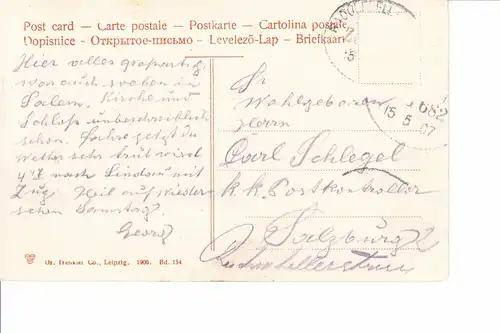 Post card – Carte postale – Postkarte – Cartolina postale
Dopisnice – Открытое-письмо – Levelezö-Lap – Briefkaart
Hier alles großartig,
war auch soeben in
Salem, Kirche und
Schloß unbeschreiblich
schön. Fahre jetzt in
Wetter sehr trüb wird
4 47 nach Lindau mit
Zug. Heil auf Wieder-
sehen Samstag.
Georg
Sr
Wohlgeboren
Herrn
Carl Schlegel
k. k. Postkontrollor
Salzburg 2
RADOLFZELL
682
15 5 07
Dr. Trenkler Co., Leipzig. 1906. Bd. 154